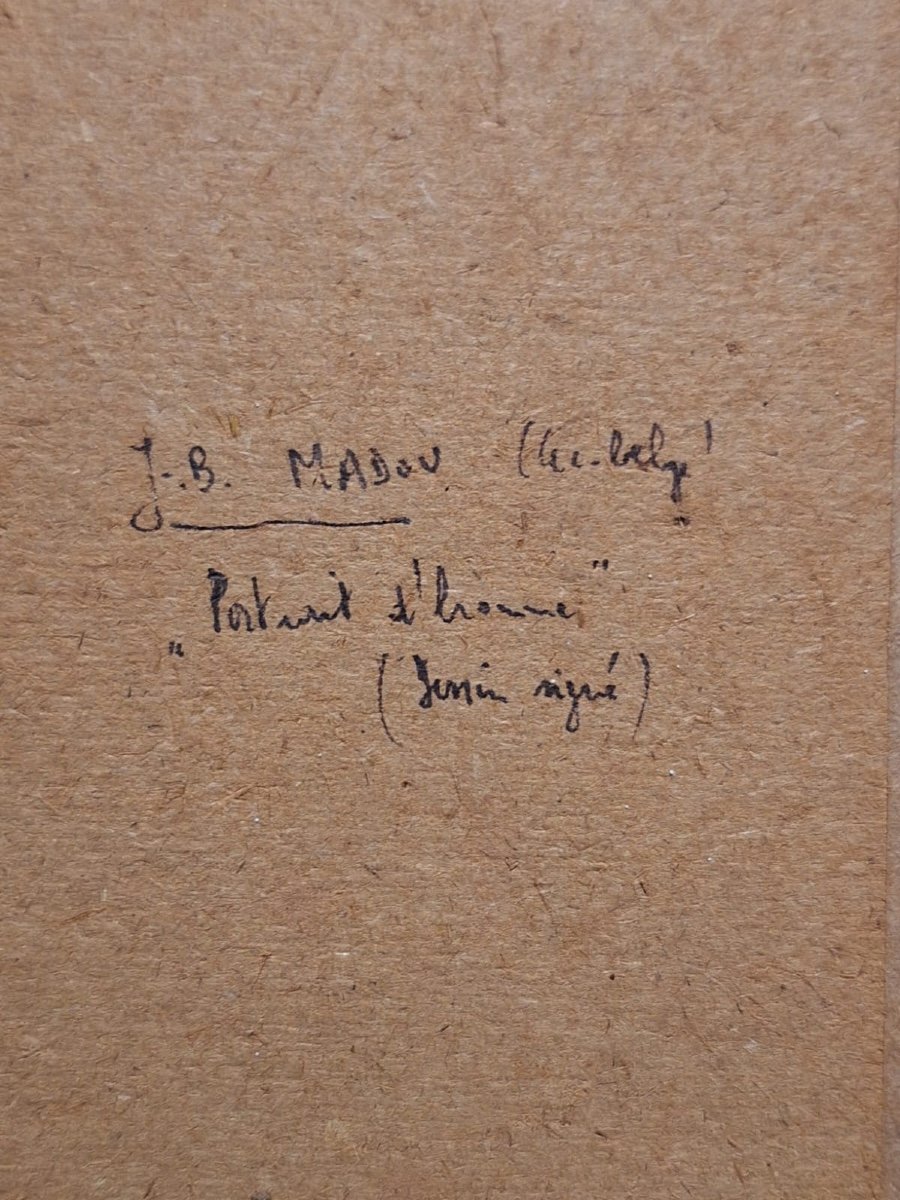 J-.B. MADOU (Ec. belge)
"Portrait d'homme"
(Dessin signé)